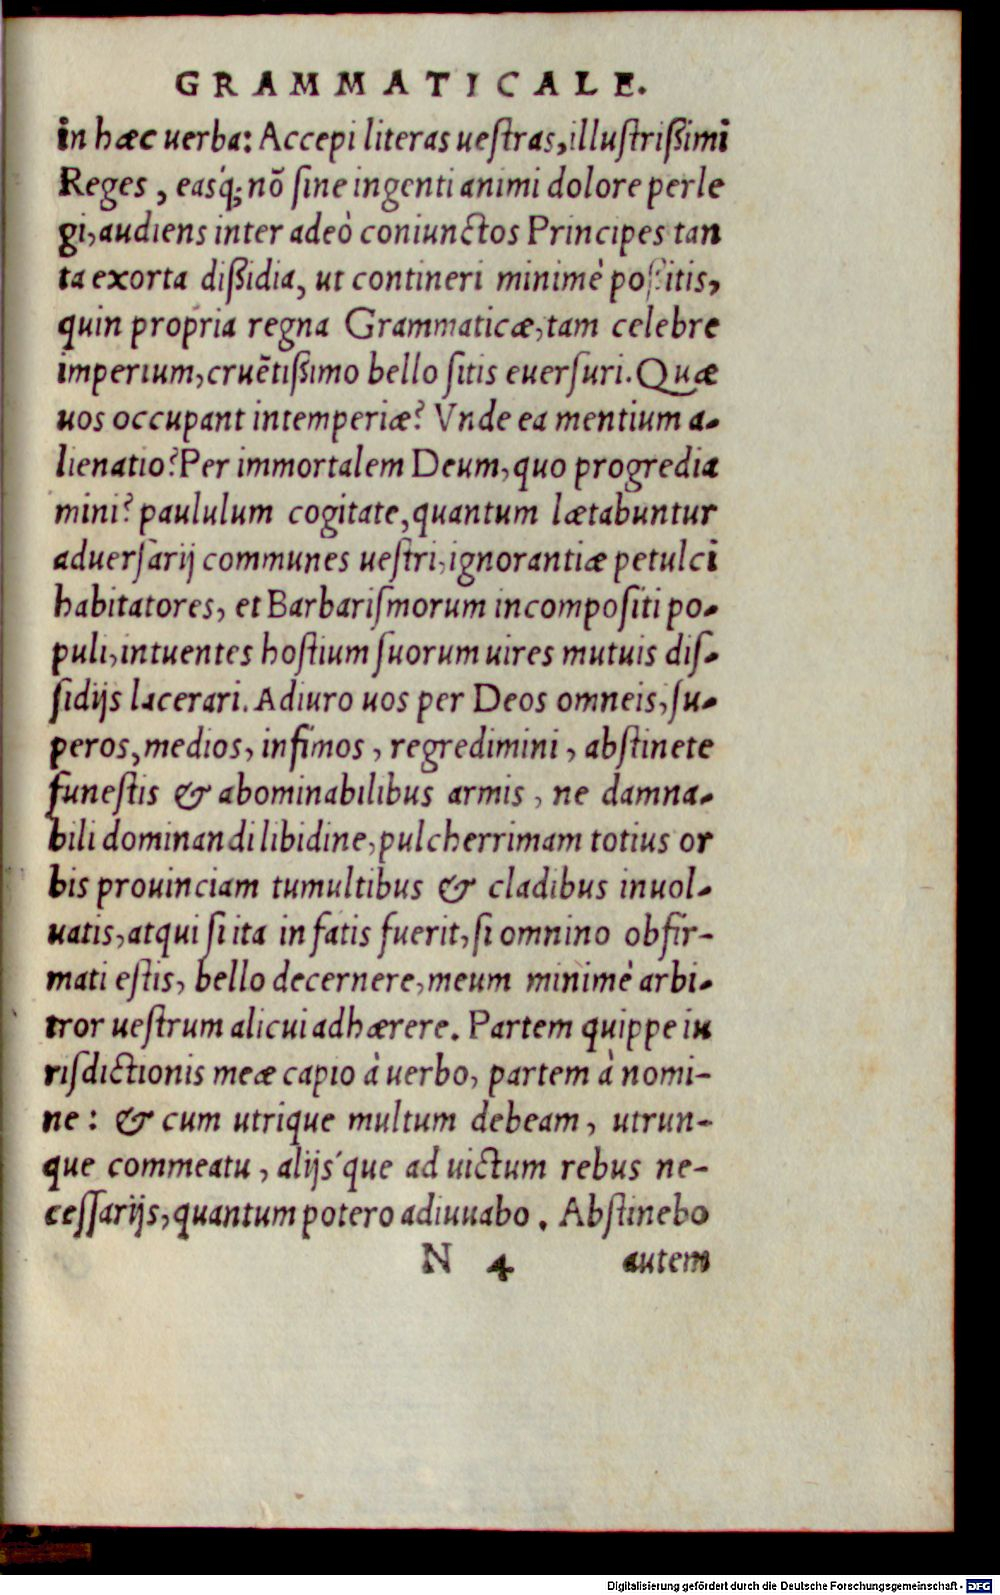 GRAMMATICALE.
in hæc uerba: Accepi literas uestras, illustrißimi
Reges, easq́; nõ sine ingenti animi dolore perle
gi, audiens inter adeò coniunctos Principes tan
ta exorta dißidia, ut contineri minimè poßitis,
quin propria regna Grammaticæ, tam celebre
imperium, cruẽtißimo bello sitis euersuri. Quæ
uos occupant intemperiæ? Vnde ea mentium a-
lienatio? Per immortalem Deum, quo progredia
mini? paululum cogitate, quantum lætabuntur
aduersarij communes uestri, ignorantiæ petulci
habitatores, et Barbarismorum incompositi po-
puli, intuentes hostium suorum uires mutuis dis-
sidijs lacerari. Adiuro uos per Deos omneis, su-
peros, medios, infimos, regredimini, abstinete
funestis & abominabilibus armis, ne damna-
bili dominandi libidine, pulcherrimam totius or
bis prouinciam tumultibus & cladibus inuol-
uatis, atqui si ita in fatis fuerit, si omnino obfir-
mati estis, bello decernere, meum minimè arbi-
tror uestrum alicui adhærere. Partem quippe iu
risdictionis meæ capio à uerbo, partem à nomi-
ne: & cum utrique multum debeam, utrun-
que commeatu, alijs´que ad uictum rebus ne-
cessarijs, quantum potero adiuuabo. Abstinebo
N 4 autem
Digitalisierung gefördert durch die Deutsche Forschungsgemeinschaft - DFG